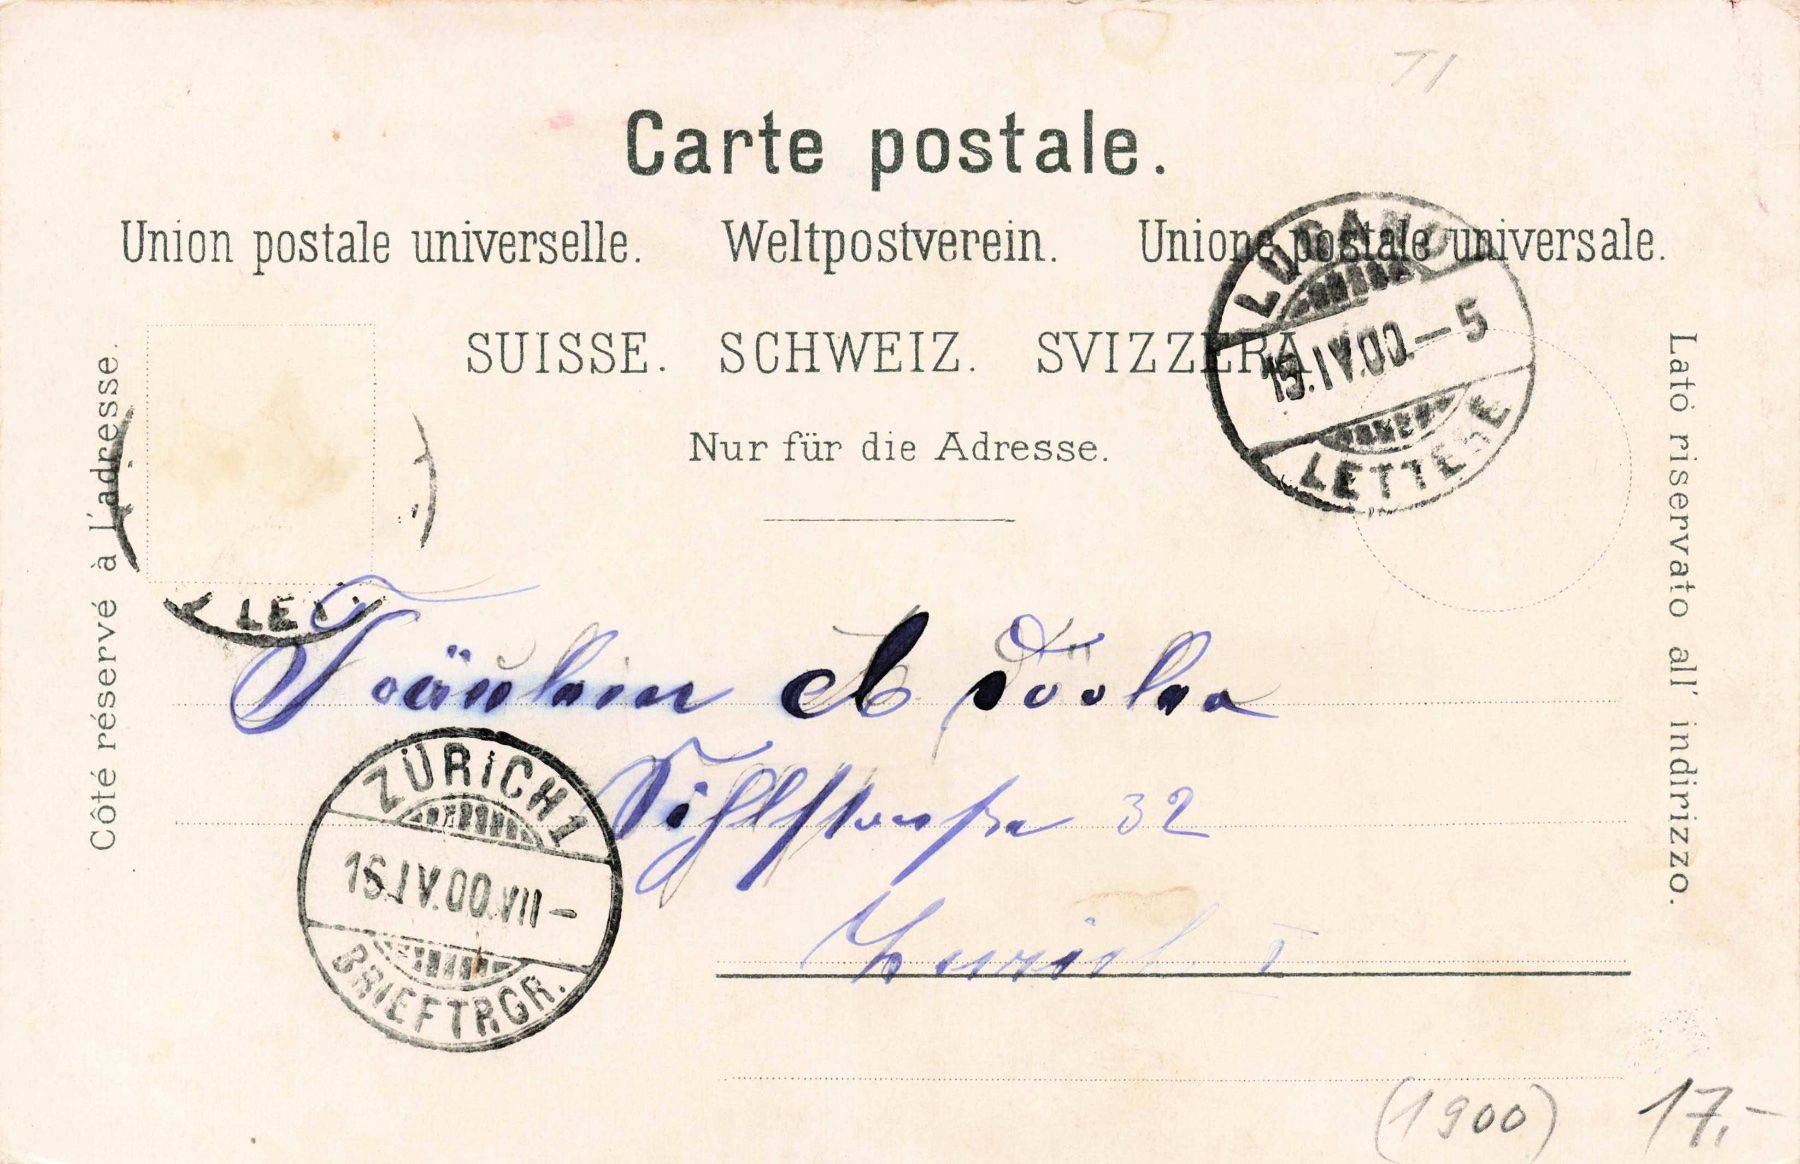 TI
Carte postale.
Union postale universelle. Weltpostverein. Unione postale universale.
SUISSE. SCHWEIZ. SVIZZERA
Nur für die Adresse.
Côté réservé à l'adresse.
Lató riservato all' indirizzo.
LUGANO
15.IV.00.–5
LETTERE
LET
Fräulein
Sihlstrasse 32
Zürich I
ZÜRICH 1
16.IV.00.VII–
BRIEFTRGR.
(1900) 17.-